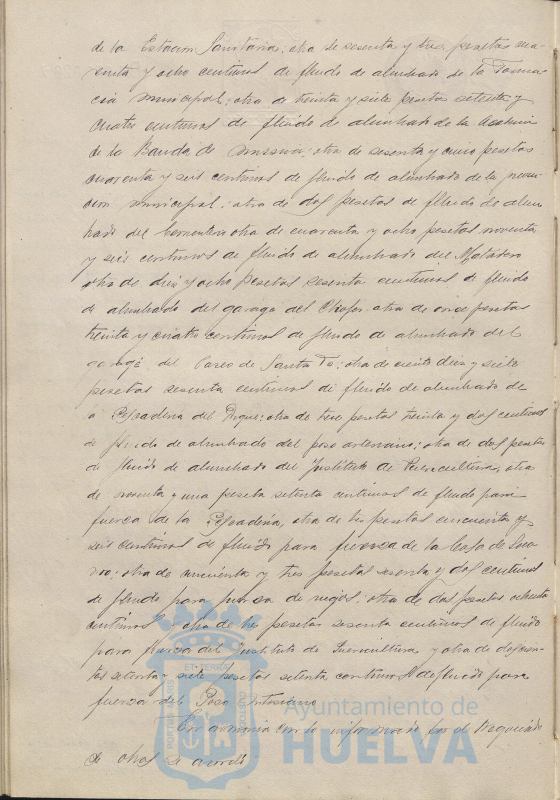 de la Estacion Sanitaria; otra de sesenta y tres pesetas cua-
renta y ocho centimos de fluido de alumbrado de la Farma-
cia municipal; otra de treinta y siete pesetas setenta y
cuatro centimos de fluido de alumbrado de la Academia
de la Banda de musica; otra de sesenta y cinco pesetas
cuarenta y seis centimos de fluido de alumbrado de la
municipal; otra de dos pesetas de fluido de alum-
brado del Cementerio otra de cuarenta y ocho pesetas noventa
y seis centimos de fluido de alumbrado del Matadero
otra de diez y ocho pesetas sesenta centimos de fluido
de alumbrado del garage del Chofer otra de once pesetas
treinta y cuatro centimos de fluido de alumbrado del
garage del Paseo de Santa Fe; otra de ciento diez y siete
pesetas sesenta centimos de fluido de alumbrado de
la Pescaderia del Dique; otra de tres pesetas treinta y dos centimos
de fluido de alumbrado del pozo artesiano; otra de dos pesetas
de fluido de alumbrado del Instituto de Puericultura, otra
de noventa y una peseta setenta centimos de fluido para
fuerza de la Pescaderia, otra de tres pesetas cincuenta y
seis centimos de fluido para fuerza de la Casa de Soco-
rro; otra de cincuenta y tres pesetas sesenta y dos centimos
de fluido para fuerza de riegos; otra de dos pesetas ochenta
centimos otra de tres pesetas sesenta centimos de fluido
para fuerza del Instituto de Puericultura y otra de doscien-
tas setenta y siete pesetas setenta centimos de fluido para
fuerza del Pozo Artesiano
En armonia con lo informado por el Negociado
se acordó
ET TERRAE
Ayuntamiento de
HUELVA